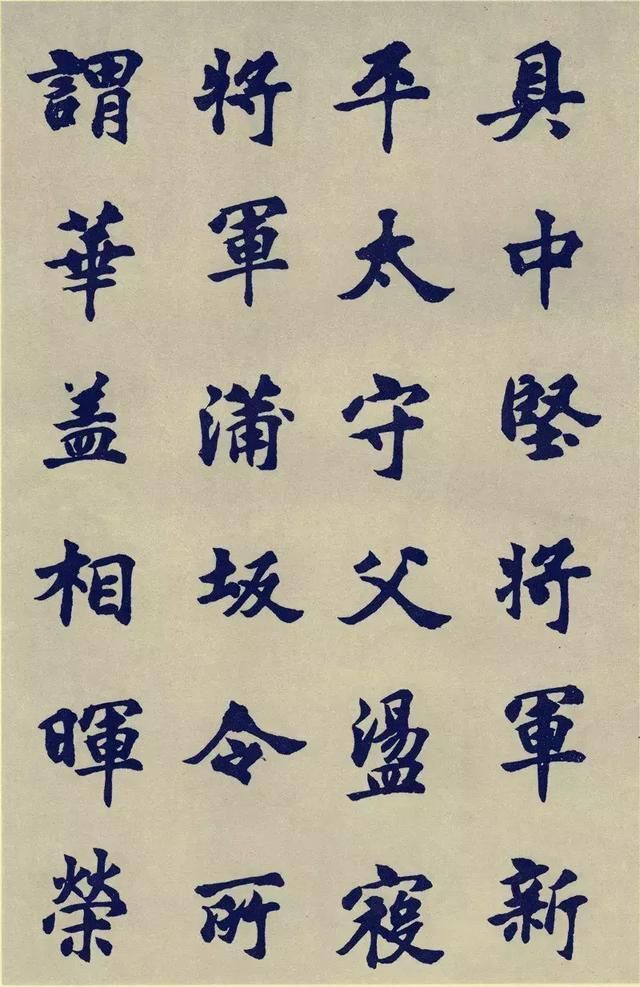 具中堅将軍新
平太守父盪寇
将軍蒲坂令所
謂華盖相暉榮